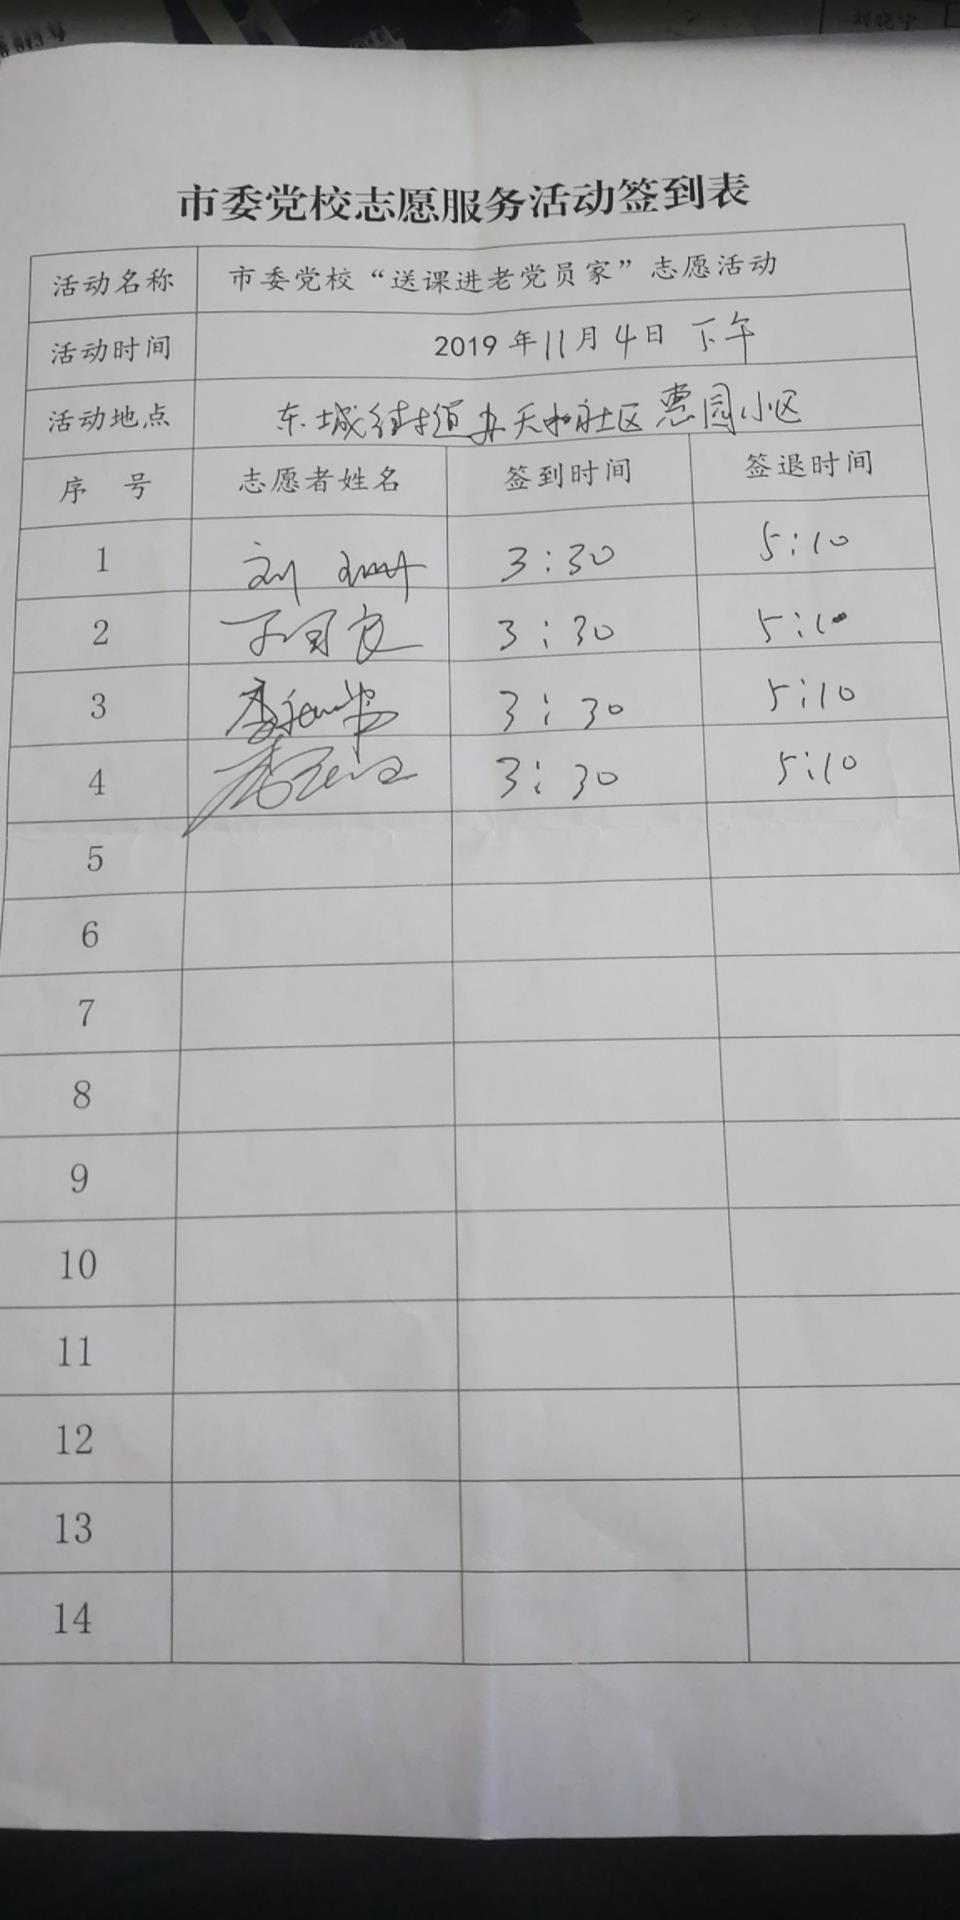 刘晓宁
市委党校志愿服务活动签到表
活动名称 市委党校“送课进老党员家”志愿活动
活动时间 2019年11月4日 下午
活动地点 东城街道办天和社区惠园小区
序 号 志愿者姓名 签到时间 签退时间
1 刘 3:30 5:10
2 3:30 5:10
3 3:30 5:10
4 3:30 5:10
5
6
7
8
9
10
11
12
13
14